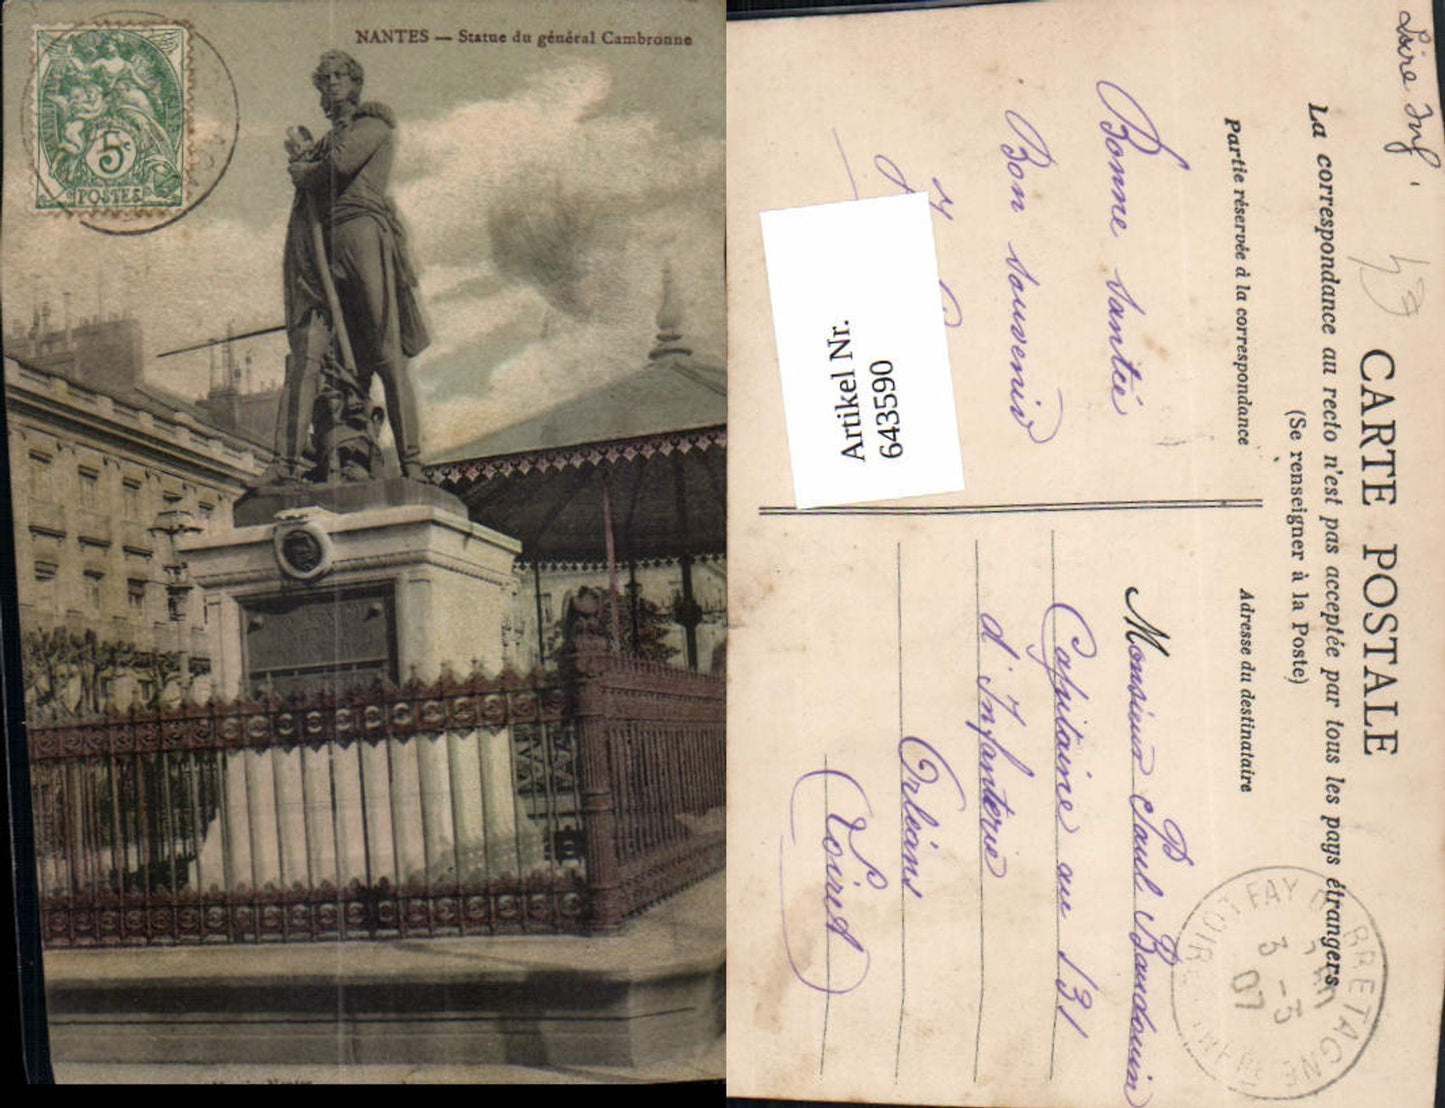 NANTES — Statue du général Cambronne
5c
POSTES
Loire Inf.
CARTE POSTALE
La correspondance au recto n'est pas acceptée par tous les pays étrangers
(Se renseigner à la Poste)
Partie réservée à la correspondance
Adresse du destinataire
Bonne Santé
Bon souvenir
Artikel Nr.
643590
Monsieur Paul Baudouin
Capitaine au 131
d'Infanterie
Orléans
Loiret
FAY DE BRETAGNE
3 - 3
07